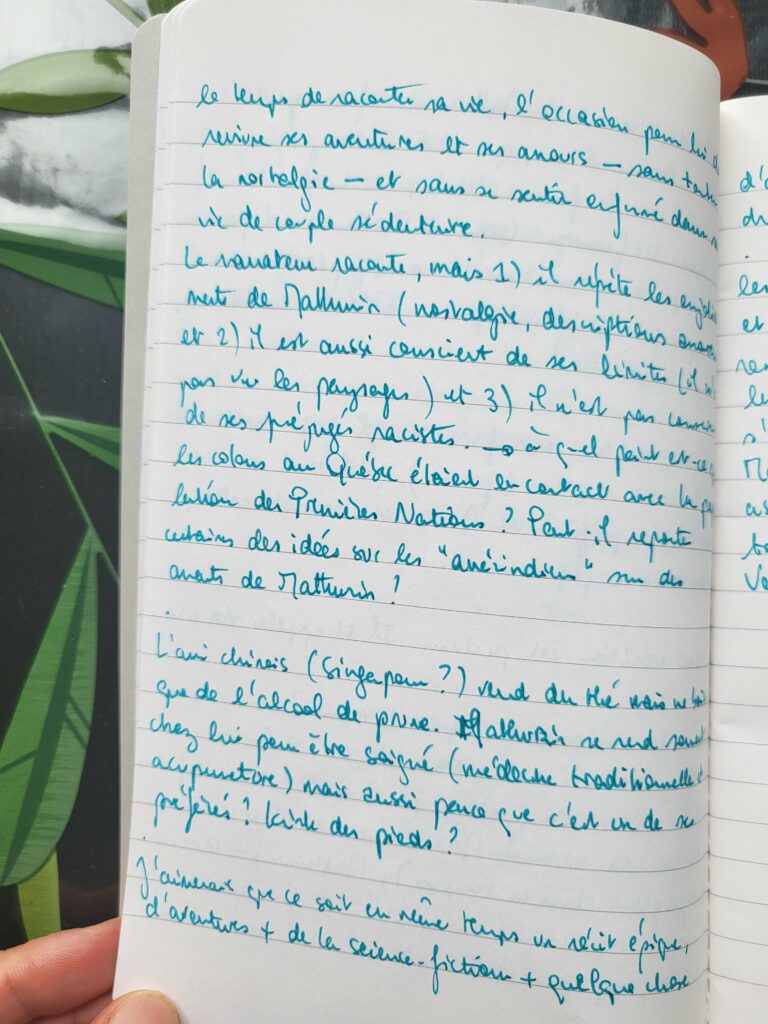 le temps de raconter sa vie, l'occasion pour lui d
revivre ses aventures et ses amours – sans tomber
la nostalgie – et sans se sentir enfermé dans sa
vie de couple sédentaire.
Le narrateur raconte, mais 1) il répète les enjoli
ments de Mathurin (nostalgie, descriptions
et 2) il est aussi conscient de ses limites (il n'a
pas vu les paysages) et 3) il n'est pas conscient
de ses préjugés racistes. → à quel point est-ce q
les colons au Québec étaient en contact avec la pop
lation des Premières Nations ? Peut-il reporter
certaines des idées sur les "amérindiens" sur des
amants de Mathurin ?
.
L'ami chinois (Singapour ?) vend du thé mais ne boit
que de l'alcool de prune. Mathurin se rend souvent
chez lui pour être soigné (médecine traditionnelle et
acupuncture) mais aussi parce que c'est un de ses
préférés ? kink des pieds ?
.
J'aimerais que ce soit en même temps un récit épique,
d'aventures + de la science-fiction + quelque chose
d'
du
.
les
et
le
s'
Ma
as